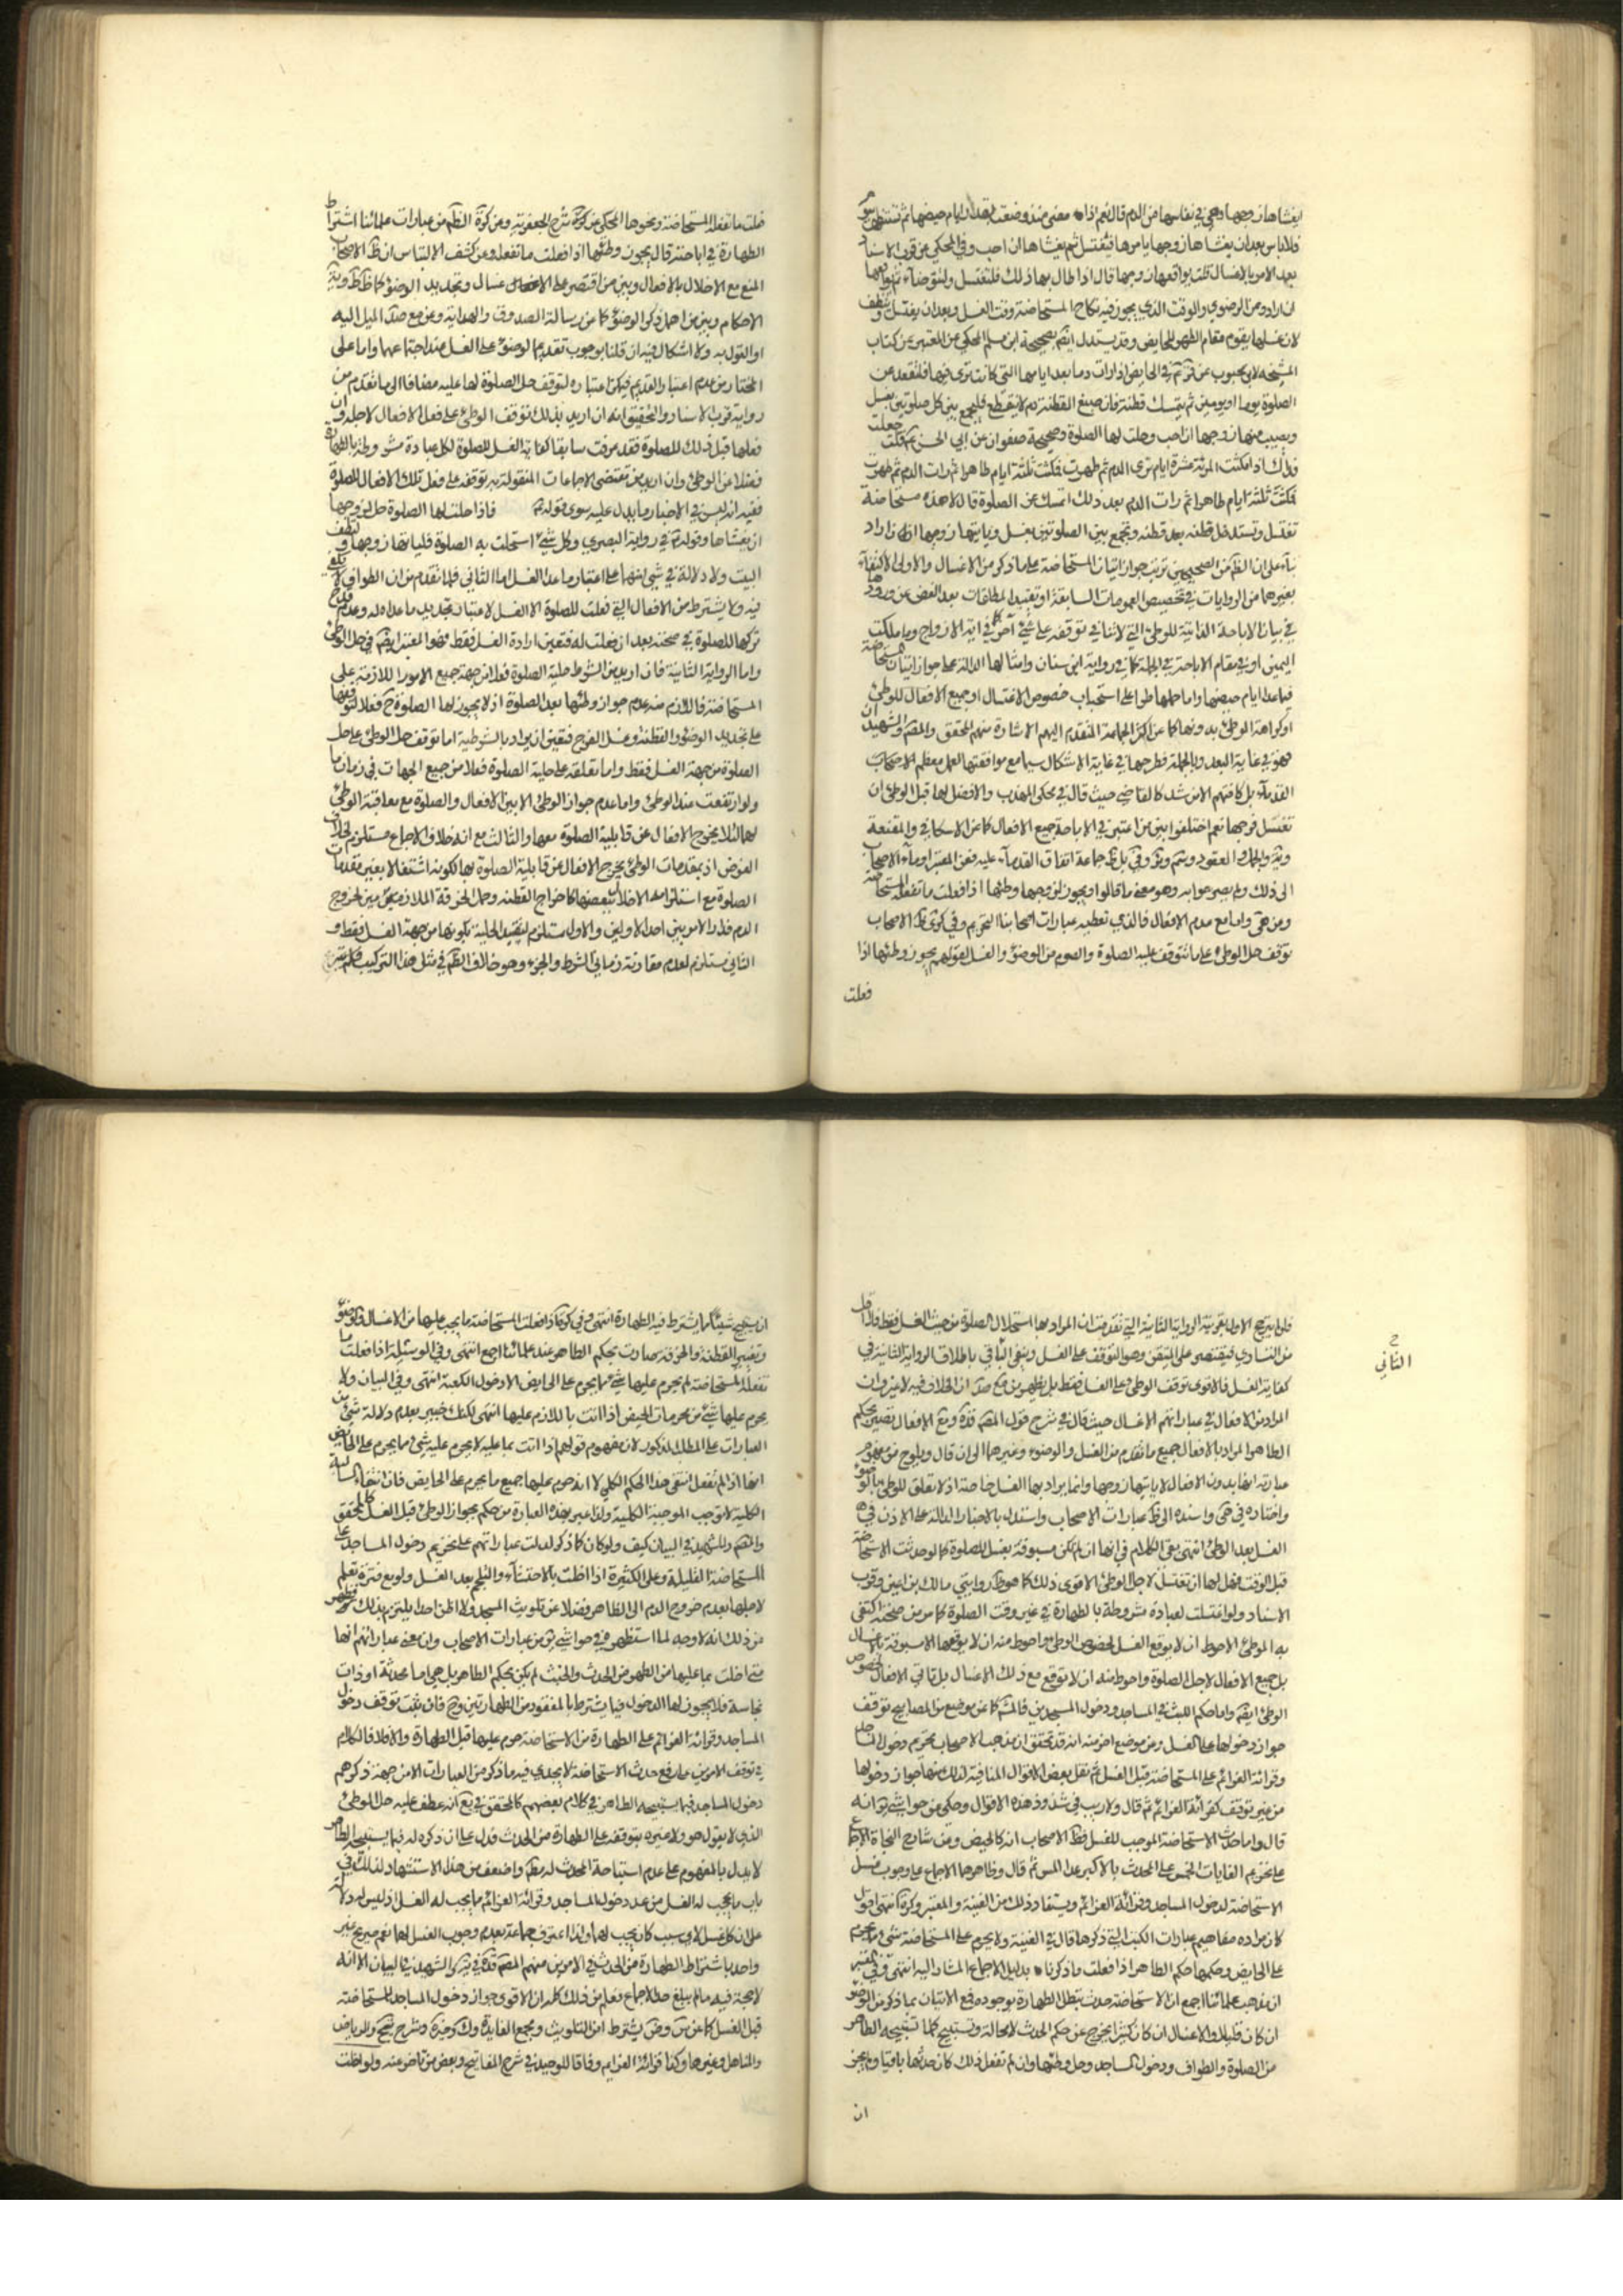 يغشاها زوجها وهي في نفاسها من الدم قال نعم اذا مضى منذ وضعت بقدر ايام حيضها ثم تستظهر بيوم
فلا باس بعد ان يغشاها زوجها يامرها فتغتسل ثم يغشاها ان احب وفي المحكي عن قرب الاسناد
بعد الامر بالاغسال قلت يواقعها زوجها قال اذا طال بها ذلك فلتغتسل ولتتوضأ ثم يواقعها
ان اراد وعن الرضوي والوقت الذي يجوز فيه نكاح المستحاضة وقت الغسل وبعد ان يغتسل وتنظف
لان غسلها يقوم مقام الطهر للحايض وقد يستدل ايضا بصحيحة ابن مسلم المحكي عن المعتبر عن كتاب
المشيخه لابن محبوب عن في الحايض اذا رات دما بعد ايامها التي كانت ترى فيها فلتقعد عن
الصلوة يوما او يومين ثم تمسك قطنة فان صبغ القطنة دم لا ينقطع فلتجمع بين كل صلوتين بغسل
ويصيب منها زوجها ان احب وحلت لها الصلوة وصحيحة صفوان عن ابي الحسن قلت جعلت
فداك اذا مكثت المرئة عشرة ايام ترى الدم ثم طهرت فمكثت ثلثة ايام طاهرا ثم رات الدم بعد ذلك
اتمسك عن الصلوة قال لا هذه مستحاضة
تغتسل وتستدخل قطنه بعد قطنه وتجمع بين الصلوتين بغسل وياتيها زوجها ان اراد
بناء على ان الظم من الصحيحين ترتب جواز اتيان المستحاضة على ما ذكر من الاغسال والاولى الاكتفاء
بغيرها من الروايات في تخصيص العمومات السابقة او تقييد المطلقات بعد الغض عن ورودها
في بيان الاباحة الذاتية للوطئ التي لا تنافي توقفه على شئ آخر كما في اية الازواج وما ملكت
اليمين او في مقام الاباحة في الجملة كما في رواية ابن سنان وامثالها الدالة على جواز اتيان المستحاضة
فيما عدا ايام حيضها واما حملها طرا على استحباب خصوص الاغتسال او جميع الافعال للوطئ
او كراهة الوطئ بدونها كما عن اكثر الجماعة المتقدم اليهم الاشارة منهم المحقق والمصم والشهيدان
فهو في غاية البعد وبالجملة فطرحها في غاية الاشكال سيما مع موافقتها لعمل معظم الاصحاب
القدماء بل كافتهم الا من شذ كالقاضي حيث قال في محكى المهذب والافضل لها قبل الوطئ ان
تغسل فرجها نعم اختلفوا بين من اعتبر في الاباحة جميع الافعال كما عن الاسكافي والمقنعة
الى ذلك ولم يصرحوا به وهو معنى ما قالوا ويجوز لزوجها وطئها اذا فعلت ما تفعله المستحاضة
ومن هي واما مع عدم الافعال فالذي تعطيه عبارات اصحابنا التحريم وفي كرى ظم الاصحاب
توقف حل الوطئ على ما تتوقف عليه الصلوة والصوم من الوضوء والغسل لقولهم يجوز وطئها اذا
فعلت
فعلت ما تفعله المستحاضة ونحوها المحكي عن شرح الجعفرية وعن كرى الظم من عبارات علمائنا اشتراط
الطهارة في اباحته قال يجوز وطئها اذا فعلت ما تفعله وعن كشف الالتباس ان ظم الاصحاب
المنع مع الاخلال بالافعال وبين من اقتصر على الاغسال وتجديد الوضوء كما ظم
الاحكام وبين من اهمل ذكر الوضوء كما عن رسالة الصدوق والهداية وعن مع صد الميل اليه
او القول به ولا اشكال فيه ان قلنا بوجوب تقديم الوضوء على الغسل عند اجتماعهما واما على
المختار من عدم اعتبار التقديم فيمكن اعتباره لتوقف حل الصلوة لها عليه مضافا الى ما تقدم من
رواية قرب الاسناد والتحقيق انه ان اريد بذلك توقف الوطئ على فعل الافعال لاجله وان
فعلها قبل ذلك للصلوة فقد عرفت سابقا كفاية الغسل للصلوة لكل عبادة مشروطة بالطهارة
فضلا عن الوطئ وان اريد من مقتضى الاجماعات المنقولة به توقفه على فعل تلك الافعال للصلوة
ففيه انه ليس في الاخبار ما يدل عليه سوى قوله فاذا حلت لها الصلوة حل لزوجها
ان يغشاها وقوله في رواية البصري وكل شئ استحلت به الصلوة فلياتها زوجها ولتطف
البيت ولا دلالة في شئ منهما على اعتبار ما عدا الغسل اما الثاني فلما تقدم من ان الطواف لا
فيه ولا يشترط من الافعال التي فعلت للصلوة الا الغسل لاعتبار تجديد ما عداه له وعدم قدح
تركها للصلوة في صحته بعد ان فعلت له فتعين ارادة الغسل فقط فهو المعتبر ايضا في حل الوطئ
واما الرواية الثانية فان اريد من الشرط حلية الصلوة فعلا من جهة جميع الامور اللازمة على
المستحاضة فاللازم منه عدم جواز وطئها بعد الصلوة اذ لا يجوز لها الصلوة ح فعلا لتوقفها
على تجديد الوضوء والقطنة وغسل الفرج فتعين ان يراد بالشرطية اما توقف حل الوطئ على حل
الصلوة من جهة الغسل فقط واما تعلقه على حلية الصلوة فعلا من جميع الجهات في زمان ما
ولو ارتفعت عند الوطئ واما عدم جواز الوطئ الا بين الافعال والصلوة مع معاقبة الوطئ
لها لئلا يخرج الافعال عن قابلية الصلوة معها والثالث مع انه خلاف الاجماع مستلزم لخلاف
الفرض اذ بمقدمات الوطئ يخرج الافعال عن قابلية الصلوة بها لكونه اشتغالا بغير مقدمات
الصلوة مع استلزامه الاخلال ببعضها كاخراج القطنه وحل الخرقة الملازمين لخروج
الدم فدار الامر بين احد الاولين والاول مستلزم لتقييد الحلية بكونها من جهة الغسل فقط و
الثاني مستلزم لعدم مقارنة زماني الشرط والجزء وهو خلاف الظم في مثل هذا التركيب
ح
الثاني
فلو لم يرجح الاول بقرينة الرواية الثانية التي تقدمت ان المراد بها استحلال الصلوة من حيث الغسل فقط فلا اقل
من التساوي فيقتصر على المتيقن وهو التوقف على الغسل وينفى الباقي باطلاق الرواية الثانية في
كفاية الغسل فالاقوى توقف الوطئ على الغسل فقط بل يظهر من صد ان الخلاف فيه لا غير وان
المراد من الافعال في عباراتهم الاغسال حيث قال في شرح قول المصم قده ومع الافعال تصير بحكم
الطاهر المراد بالافعال جميع ما تقدم من الغسل والوضوء وغيرهما الى ان قال ويلوح من مفهوم
عبارته انها بدون الافعال لا ياتيها زوجها وانما يراد بها الغسل خاصة اذ لا تعلق للوطئ بالوضوء
واختاره في هى واسنده الى ظم عبارات الاصحاب واستدل بالاخبار الدالة على الاذن في
الغسل بعد الوطئ انتهى بقى الكلام في انها ان لم تكن مسبوقة بغسل للصلوة كما لو حدثت الاستحاضة
قبل الوقت فهل لها ان تغتسل لاجل الوطئ الاقوى ذلك كما هو ظم روايتي مالك بن اعين وقرب
الاسناد ولو اغتسلت لعبادة مشروطة بالطهارة في غير وقت الصلوة كما مر من صحته اكتفى
به الوطئ الاحوط ان لا يوقع الغسل لخصوص الوطئ واحوط منه ان لا يوقعها الا مسبوقة بالاغسال
بل جميع الافعال لاجل الصلوة واحوط منه ان لا توقع مع ذلك الاغسال بل تاتي الافعال لخصوص
الوطئ ايضا واما حكم اللبث في المساجد ودخول المسجدين فالمشم كما عن موضع من المصابيح توقف
جواز دخولها على الغسل ومن موضع اخر منه انه قد تحقق ان مذهب الاصحاب تحريم دخول المساجد
وقرائة العزائم على المستحاضة قبل الغسل ثم نقل بعض الاقوال المنافية لذلك منها جواز دخولها
من غير توقف كقرائة العزائم ثم قال ولا ريب في شذوذ هذه الاقوال وحكى عن حواشي انه
قال واما حدث الاستحاضة الموجب للغسل فظم الاصحاب انه كالحيض وعن شارح النجاة الاجماع
على تحريم الغايات الخمس على المحدث بالاكبر عدا المس ثم قال وظاهرهما الاجماع على وجوب غسل
الاستحاضة لدخول المساجد وقرائة العزائم ويستفاد ذلك من الغنية والمعتبر وكرة انتهى اقول
كان مراده مفاهيم عبارات الكتب التي ذكرها قال في الغنية ولا يحرم على المستحاضة شئ مما يحرم
على الحايض وحكمها حكم الطاهر اذا فعلت ما ذكرناه بدليل الاجماع المشار اليه انتهى وفي المعتبر
ان مذهب علمائنا اجمع ان الاستحاضة حدث تبطل الطهارة بوجوده فمع الاتيان بما ذكر من الوضوء
ان كان قليلا والاغسال ان كان كثيرا يخرج عن حكم الحدث لا محالة وتستبيح كلما تستبيحه الطاهر
من الصلوة والطواف ودخول المساجد وحل وطئها وان لم تفعل ذلك كان حدثها باقيا ولم يجز
ان
ان تستبيح شيئا مما يشترط فيه الطهارة انتهى وفي كرة اذا فعلت المستحاضة ما يجب عليها من الاغسال والوضوء
وتغيير القطنة والخرقة صارت بحكم الطاهر عند علمائنا اجمع انتهى وفي الوسيلة اذا فعلت ما
تفعله المستحاضة لم يحرم عليها شئ مما يحرم على الحايض الا دخول الكعبة انتهى وفي البيان ولا
يحرم عليها شئ من محرمات الحيض اذا اتت باللازم عليها انتهى لكنك خبير بعدم دلالة شئ من
العبارات على المطلب المذكور لان مفهوم قولهم اذا اتت بما عليه لا يحرم عليه شئ مما يحرم على الحايض
انها اذا لم تفعل انتفى هذا الحكم الكلي لا انه حرم عليها جميع ما يحرم على الحايض فان انتفاء السالبة
الكلية لا توجب الموجبة الكلية ولذا عبر بهذه العبارة من حكم بجواز الوطئ قبل الغسل كالمحقق
والمصم والشهيد في البيان كيف ولو كان كما ذكر لدلت عباراتهم على تحريم دخول المساجد على
المستحاضة القليلة وعلى الكثيرة اذا اخلت بالاحتشاء والتلجم بعد الغسل ولو مع فترة تعلم
لاجلها بعدم خروج الدم الى الظاهر فضلا عن تلويث المسجد ولا اظن احدا يلتزم بذلك فظهر
من ذلك انه لا وجه لما استظهر في حواشي من عبارات الاصحاب وان معنى عباراتهم انها
متى اخلت بما عليها من الطهور من الحدث والخبث لم يكن بحكم الطاهر بل هي اما محدثة او ذات
نجاسة فلا يجوز لها الدخول فيما يشترط بالمفقود من الطهارتين وح فان ثبت توقف دخول
المساجد وقرائة العزائم على الطهارة من الاستحاضة حرم عليها قبل الطهارة والا فلا فالكلام
في توقف الامرين على رفع حدث الاستحاضة لا يجدي فيه ما ذكر من العبارات الا من جهة ذكرهم
دخول المساجد فيما يستبيحه الطاهر في كلام بعضهم كالمحقق في مع انه عطف عليه حل الوطئ
الذي لا يقول هو ولا غيره بتوقفه على الطهارة من الحدث فدل على ان ذكره له فيما يستبيحه الطاهر
لا يدل بالمفهوم على عدم استباحة المحدث له مطم واضعف من هذا الاستشهاد لذلك في
باب ما يجب له الغسل من عد دخول المساجد وقرائة العزائم مما يجب له الغسل اذ ليس له دلالة
على ان كل غسل لاي سبب كان يجب لهما ولذا اعترف جماعة بعدم وجوب الغسل لها نعم صرح غير
واحد باشتراط الطهارة من الحدث في الامرين منهم المصم قده في والشهيد في البيان الا انه
لا حجة فيه ما لم يبلغ حد الاجماع فعلم من ذلك كله ان الاقوى جواز دخول المساجد للمستحاضة
قبل الغسل كما عن س وض بشرط امن التلويث ومجمع الفايدة وك وخيرة وشرح والرياض
والمناهل وغيرها وكذا قرائة العزايم وفاقا للوحيد في شرح المفاتيح وبعض من تاخر عنه ولو اخلت